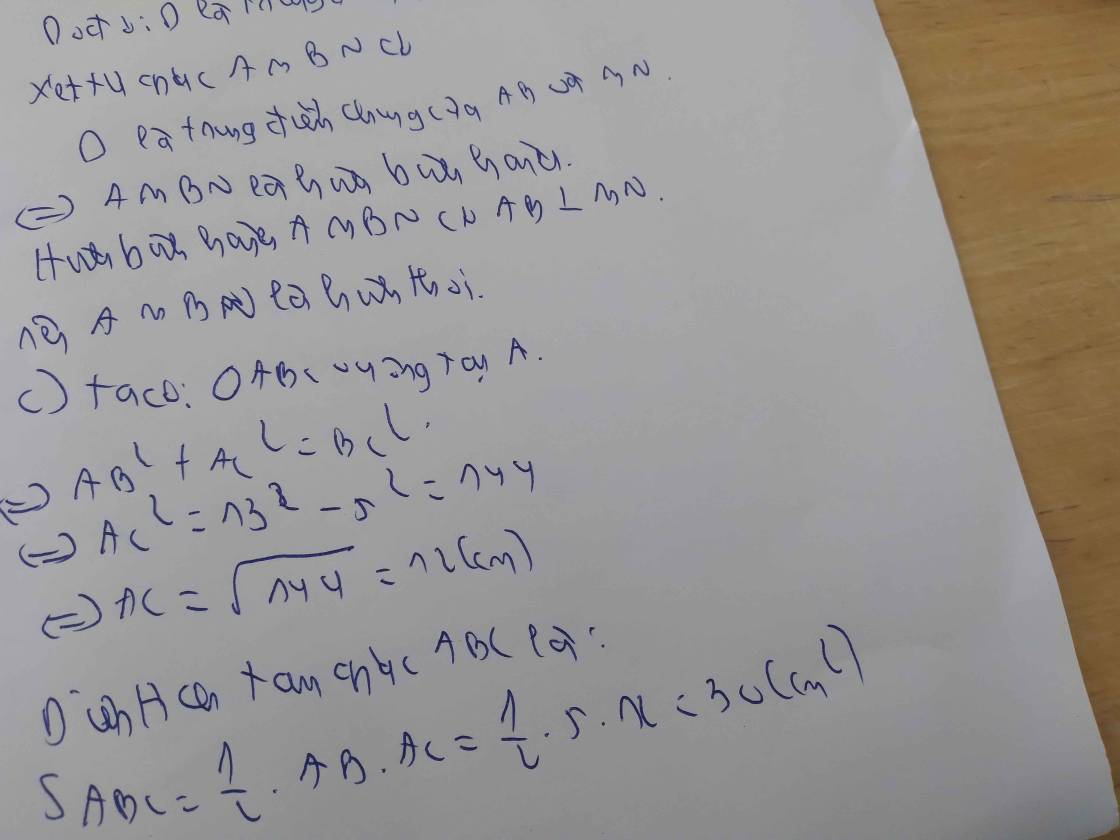 D là
Xét tứ giác AMBN có
D là trung điểm chung của AB và MN.
<=> AMBN là hình bình hành.
Hình bình hành AMBN có AB ⊥ MN.
nên AMBN là hình thoi.
c) ta có: △ABC vuông tại A.
=> AB² + AC² = BC².
<=> AC² = 13² - 5² = 144
<=> AC = √144 = 12 (cm)
Diện tích tam giác ABC là:
S ABC = 1/2 . AB . AC = 1/2 . 5 . 12 = 30 (cm²)